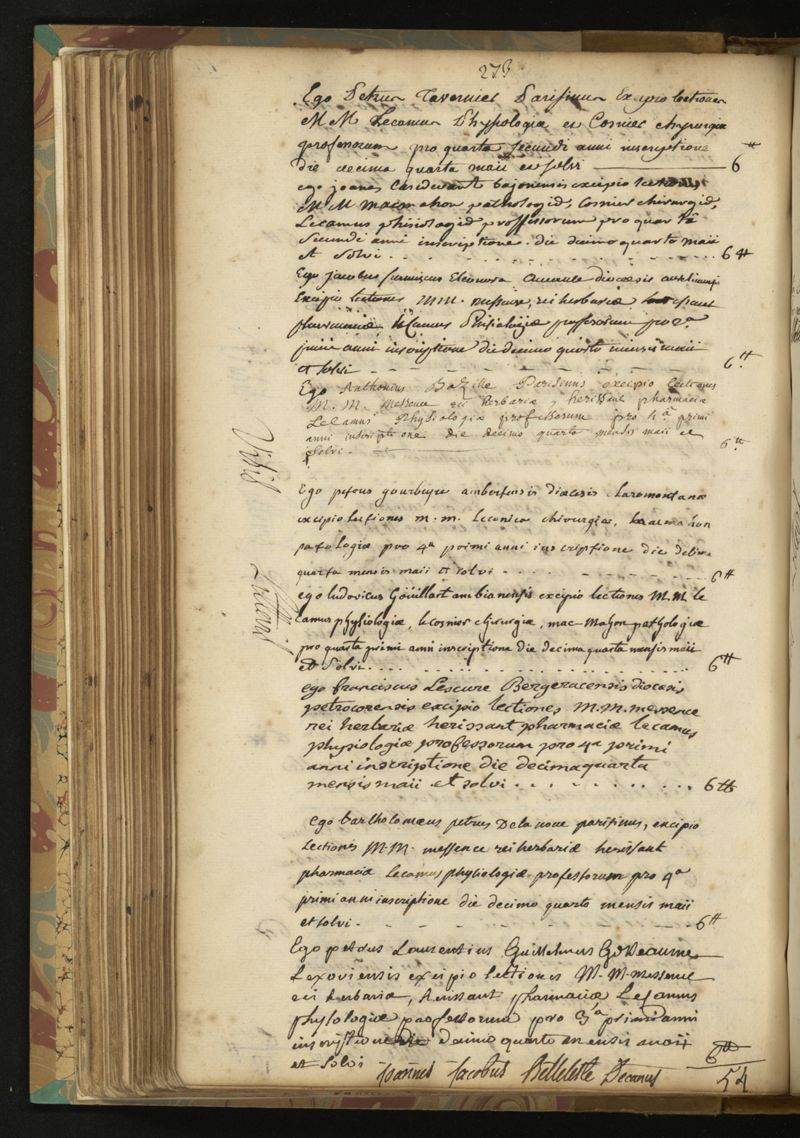 273
Ego Petrus Tavernier Parisinus Excipio lectiones
M M Lecamus Physologiæ et Cosnier chyrurgiæ
professorum pro quarta secundi anni inscriptione
die decima quarta maii et solvi 6 ₶
ego joanes Casedevant bajonensis excipio lectiones
M M macmahon pathologiæ, Cosnier chirurgiæ,
Lecamus phisiologiæ professorum pro quarta
Secundi anni inscriptione. die decimo quarto maii
et solvi 6 ₶
Ego jacobus franciscus Eleonora diocæsis aurelianensis
Excipio lectiones M.M. messence, rei herbariæ herissant
pharmaciæ, leCamus Phisiologiæ professorum pro 4a
primi anni inscriptione die decimo quarto mensis maii
et solvi 6 ₶
Ego Anthonius Parisinus excipio lectiones
M. M. Messence rei herbariæ, herissant pharmaciæ
LeCamus Physiologiæ professorum pro 4a primi
anni inscriptione die decimo quarto mensis maii et
solvi. 6 ₶
Ego petrus gourbeyre ambertensis diæcesis claromontanæ
excipio lectiones m. m. lecosnier chirurgiæ, macmahon
patologiæ pro 4a primi anni inscriptione die decima
quarta mensis maii et solvi 6 ₶
ego ludovicus Goüillart ambianensis excipio lectiones M.M. le
camus physiologiæ, le cosnier chirurgiæ, mac-Mahon pathologiæ
pro quarta primi anni inscriptione die decima quarta mensis maii
et solvi 6 ₶
ego franciscus Lescure Bergeracensis diocesis
petrocorensis excipio lectiones M.M. messence
rei herbariæ herissant pharmaciæ lecamus
physiologiæ professorum pro 4a primi
anni inscriptione die decima quarta
mensis maii et solvi 6 ₶
ego bartholomæus petrus Delanoue parisinus, excipio
Lectiones M.M. messence rei herbariæ herissant
pharmaciæ Lecamus physiologiæ professorum pro 4a
primi anni inscriptione die decimo quarto mensis maii
et solvi 6 ₶
Ego petrus Laurentius Guillelmus Godeaume
Lexoviensis excipio lectiones M. M. Messence
rei herbariæ, herissant pharmaciæ LeCamus
physologiæ professorum pro 3a primi anni
inscriptione die decimo quarto mensis maii
et solvi 6 ₶
54
Joannes Jacobus Belleteste Decanus